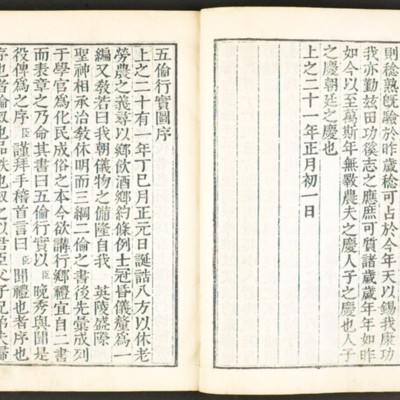 則稔熟旣驗於昨歲稔可占於今年天以錫我康功
我亦勤玆田功徯志之應庶可質諸歲歲年年如昨
如今以至萬斯年無斁農夫之慶人子之慶也人子
之慶朝廷之慶也
上之二十一年正月初一日
五倫行實圖序
上之二十有一年丁巳月正元日誕誥八方以休老
勞農之義尋以鄕飮酒鄕約條例士冠昏儀釐爲一
編又敎若曰我朝儀物之備隆自我 英陵盛際
聖神相承治敎休明而三綱二倫之書後先彙成列
于學官爲化民成俗之本今欲講行鄕禮宜自二書
而表章之乃命其書曰五倫行實以臣晩秀與聞是
役俾爲之序臣謹拜手稽首言曰臣聞禮也者序也
序也者倫敍也品秩也敍之以君臣父子兄弟夫婦